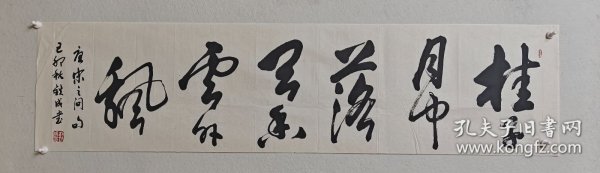 桂子
月中
落
天香
云外
飘
唐宋之问句
己卯秋钱成书
孔夫子旧书网
www.kongfz.com